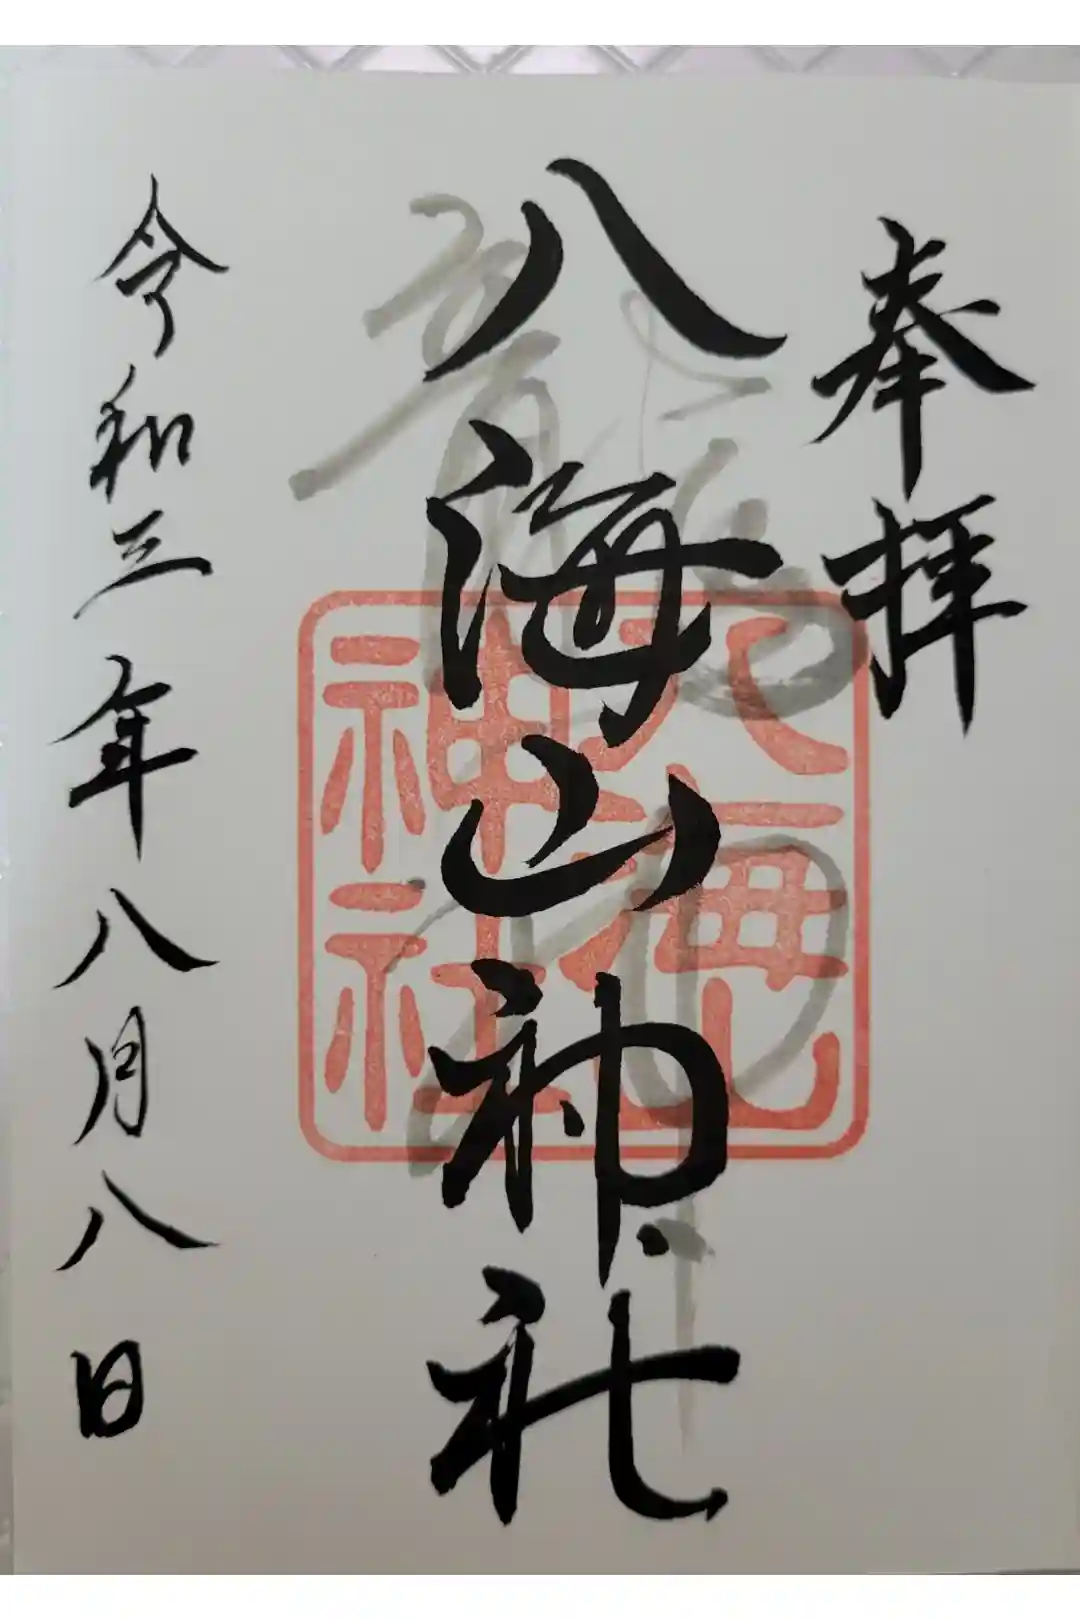 奉拝
八海山神社
八海山神社
令和三年八月八日